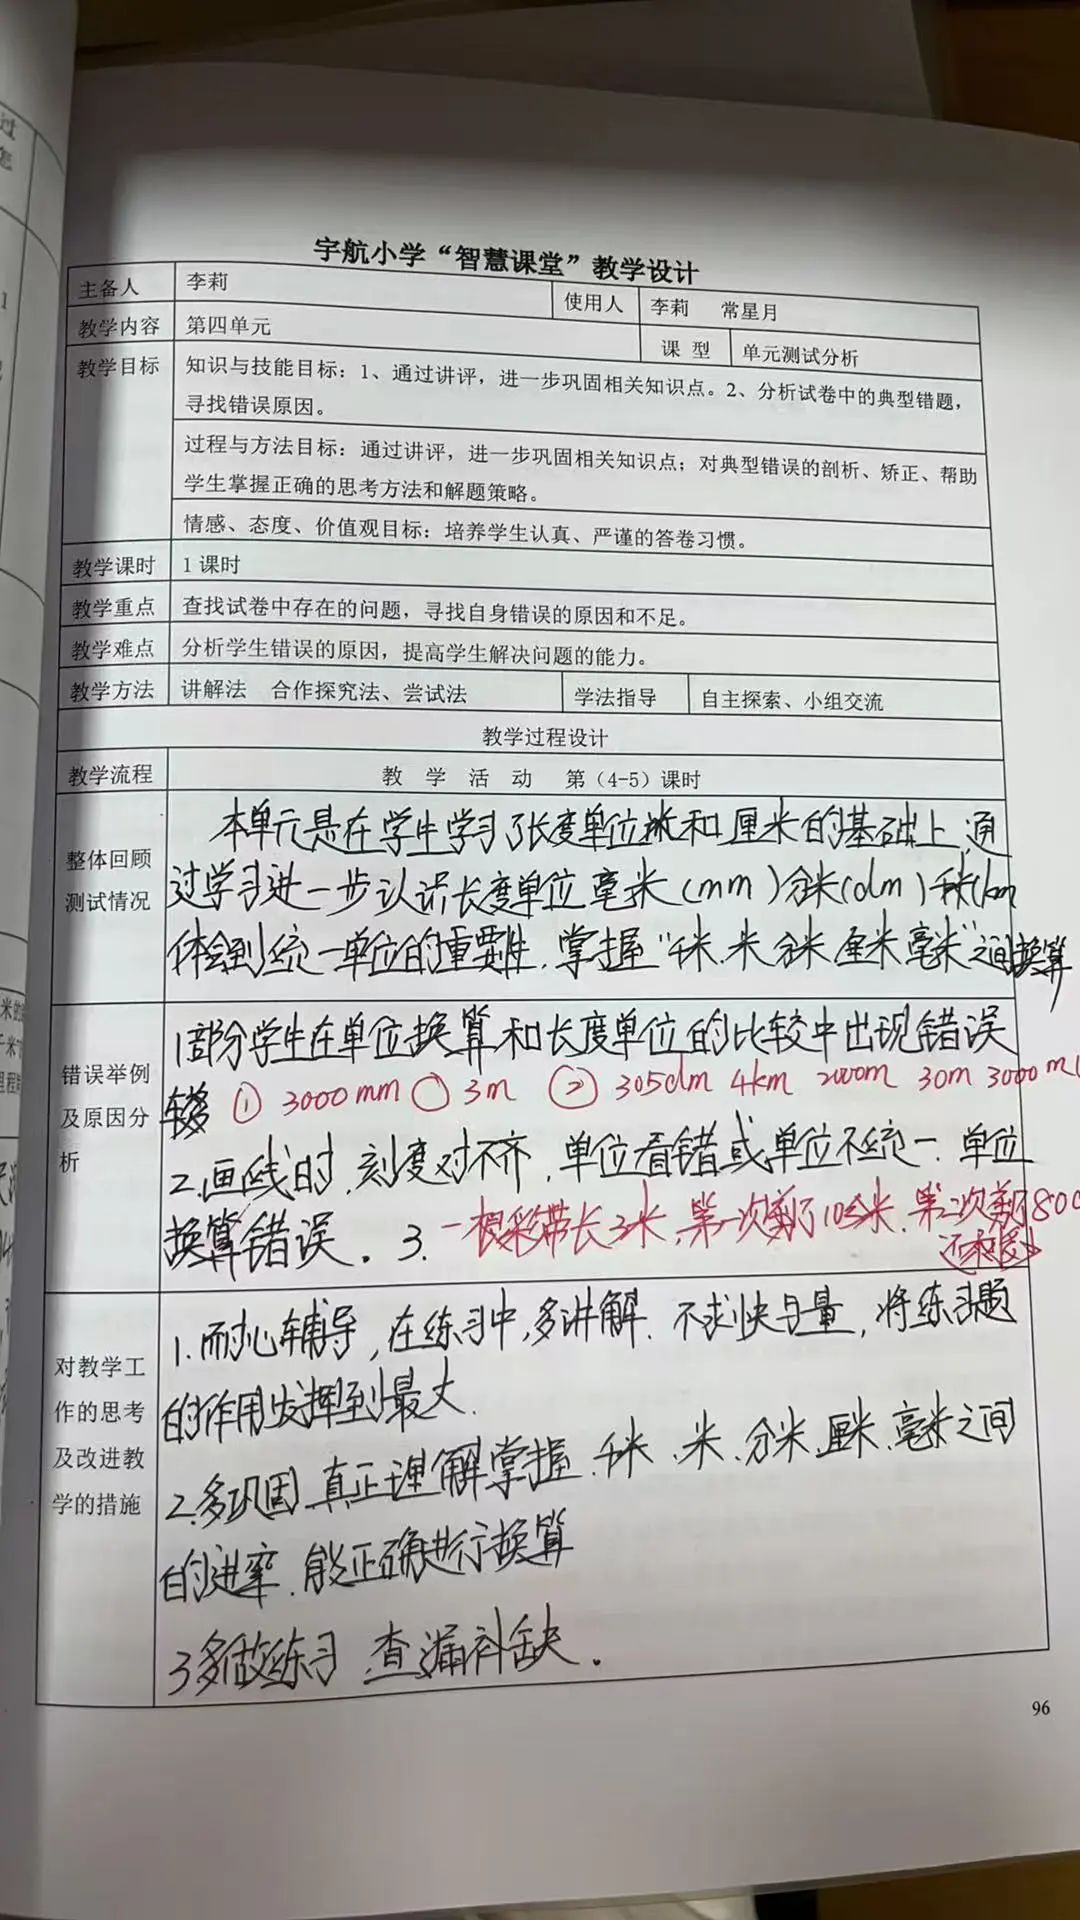 过
怎
1
宇航小学“智慧课堂”教学设计
主备人 李莉 使用人 李莉 常星月
教学内容 第四单元 课 型 单元测试分析
教学目标 知识与技能目标：1、通过讲评，进一步巩固相关知识点。2、分析试卷中的典型错题，
寻找错误原因。
过程与方法目标：通过讲评，进一步巩固相关知识点；对典型错误的剖析、矫正、帮助
学生掌握正确的思考方法和解题策略。
情感、态度、价值观目标：培养学生认真、严谨的答卷习惯。
教学课时 1 课时
教学重点 查找试卷中存在的问题，寻找自身错误的原因和不足。
教学难点 分析学生错误的原因，提高学生解决问题的能力。
教学方法 讲解法 合作探究法、尝试法 学法指导 自主探索、小组交流
教学过程设计
教学流程 教 学 活 动 第（4-5）课时
整体回顾
测试情况
本单元是在学生学习了长度单位米和厘米的基础上,通
过学习进一步认识长度单位毫米(mm)分米(dm)千米(km
体会到统一单位的重要性.掌握“千米.米.分米.厘米.毫米”之间换算
错误举例
及原因分
析
1部分学生在单位换算和长度单位的比较中出现错误
较多 ① 3000mm○3m ② 305dm 4km 2000m 30m 3000m
2.画线时.刻度对不齐.单位看错或单位不统一.单位
换算错误。3.一根彩带长3米,第一次剪了10分米.第二次剪了800
还剩多少
对教学工
作的思考
及改进教
学的措施
1.耐心辅导,在练习中,多讲解.不求快与量,将练习题
的作用发挥到最大.
2.多巩固.真正理解掌握.千米.米.分米.厘米.毫米之间
的进率.能正确进行换算
3多做练习.查漏补缺。
96